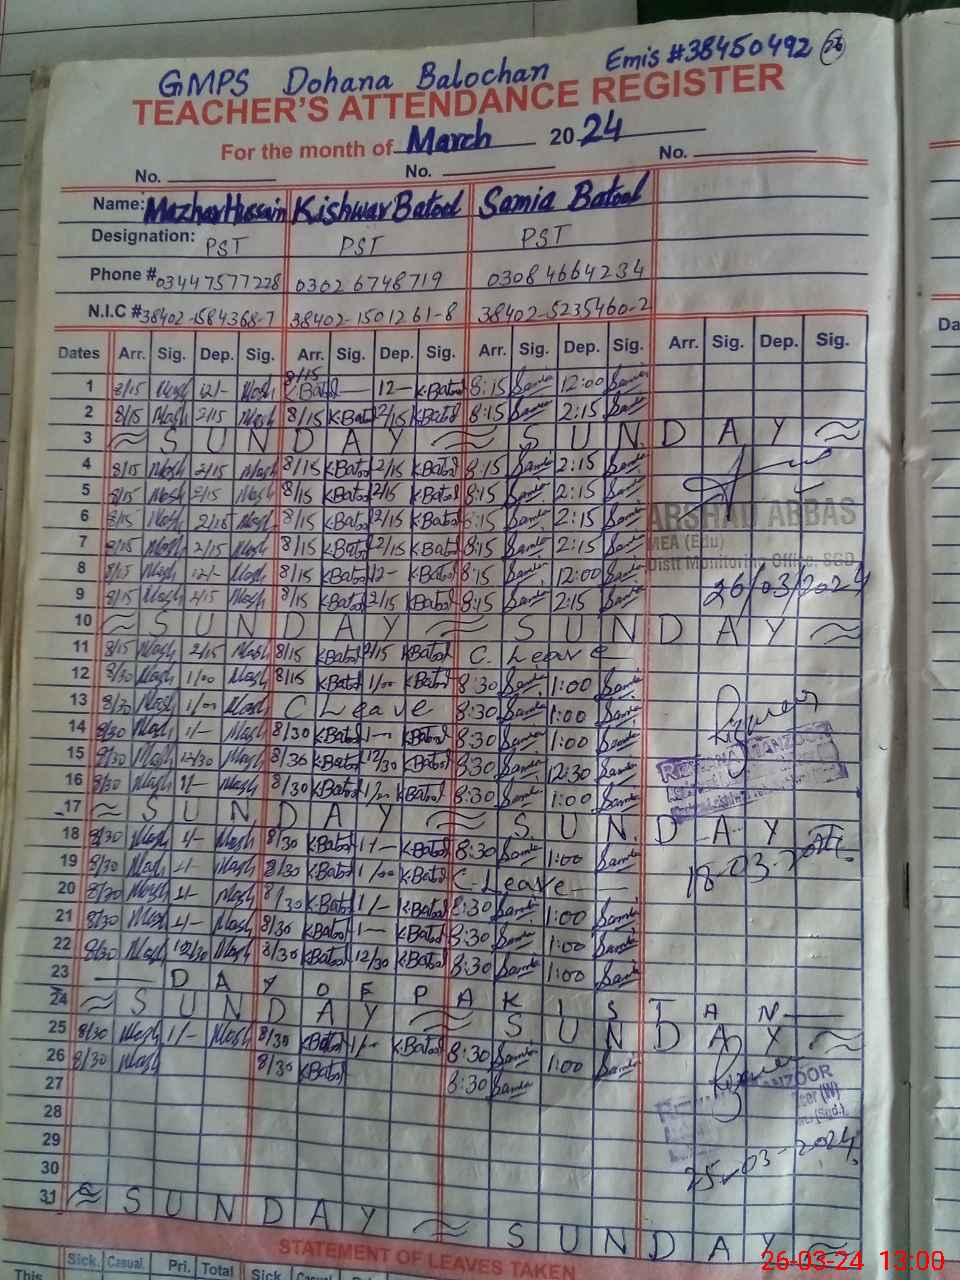 GMPS Dohana Balochan Emis #38450492 26
TEACHER'S ATTENDANCE REGISTER
For the month of March 2024
No. No. No.
Name: Mazhar Hussain Kishwar Batool Samia Batool
Designation: PST PST PST
Phone # 03447577228 0302 6748719 0308 4664234
N.I.C # 38402-1584368-7 38402-1501261-8 38402-5235460-2
Dates Arr. Sig. Dep. Sig. Arr. Sig. Dep. Sig. Arr. Sig. Dep. Sig. Arr. Sig. Dep. Sig.
1 8/15 Mazh 12/- Mazh 8/15 K.Batol 12- K.Batol 8:15 Samia 12:00 Samia
2 8/15 Mazh 2/15 Mazh 8/15 K.Batol 2/15 K.Batol 8:15 Samia 2:15 Samia
3 SUNDAY SUNDAY
4 8/15 Mazh 2/15 Mazh 8/15 K.Batol 2/15 K.Batol 8:15 Samia 2:15 Samia
5 8/15 Mazh 2/15 Mazh 8/15 K.Batol 2/15 K.Batol 8:15 Samia 2:15 Samia
6 8/15 Mazh 2/15 Mazh 8/15 K.Batol 2/15 K.Batol 8:15 Samia 2:15 Samia
ARSHAD ABBAS
7 8/15 Mazh 2/15 Mazh 8/15 K.Batol 2/15 K.Batol 8:15 Samia 2:15 Samia
MEA (Edu)
Distt Monitoring Office, SGD
8 8/15 Mazh 12/- Mazh 8/15 K.Batol 12- K.Batol 8:15 Samia 12:00 Samia
26/03/2024
9 8/15 Mazh 2/15 Mazh 8/15 K.Batol 2/15 K.Batol 8:15 Samia 2:15 Samia
10 SUNDAY SUNDAY
11 8/15 Mazh 2/15 Mazh 8/15 K.Batol 2/15 K.Batol C. Leave
12 8/30 Mazh 1/00 Mazh 8/15 K.Batol 1/00 K.Batol 8:30 Samia 1:00 Samia
13 8/30 Mazh 1/00 Mazh C Leave 8:30 Samia 1:00 Samia
14 8/30 Mazh 1/- Mazh 8/30 K.Batol 1- K.Batol 8:30 Samia 1:00 Samia
MANZOOR
15 8/30 Mazh 12/30 Mazh 8/30 K.Batol 12/30 K.Batol 8:30 Samia 12:30 Samia
16 8/30 Mazh 1/- Mazh 8/30 K.Batol 1/00 K.Batol 8:30 Samia 1:00 Samia
17 SUNDAY SUNDAY
18 8/30 Mazh 1/- Mazh 8/30 K.Batol 1/- K.Batol 8:30 Samia 1:00 Samia
18-03-2024
19 8/30 Mazh 1/- Mazh 8/30 K.Batol 1/00 K.Batol C-Leave
20 8/30 Mazh 1/- Mazh 8/30 K.Batol 1/- K.Batol 8:30 Samia 1:00 Samia
21 8/30 Mazh 1/- Mazh 8/30 K.Batol 1- K.Batol 8:30 Samia 1:00 Samia
22 8/30 Mazh 12/30 Mazh 8/30 K.Batol 12/30 K.Batol 8:30 Samia 1:00 Samia
23 DAY OF PAKISTAN
24 SUNDAY SUNDAY
25 8/30 Mazh 1/- Mazh 8/30 K.Batol 1/- K.Batol 8:30 Samia 1:00 Samia
26 8/30 Mazh 8/30 K.Batol 8:30 Samia
MANZOOR
27
28
29
25-03-2024
30
31 SUNDAY SUNDAY
STATEMENT OF LEAVES TAKEN
Sick. Casual Pri. Total Sick. Casual Pri. Total
This
Da
No.
26-03-24 13:00